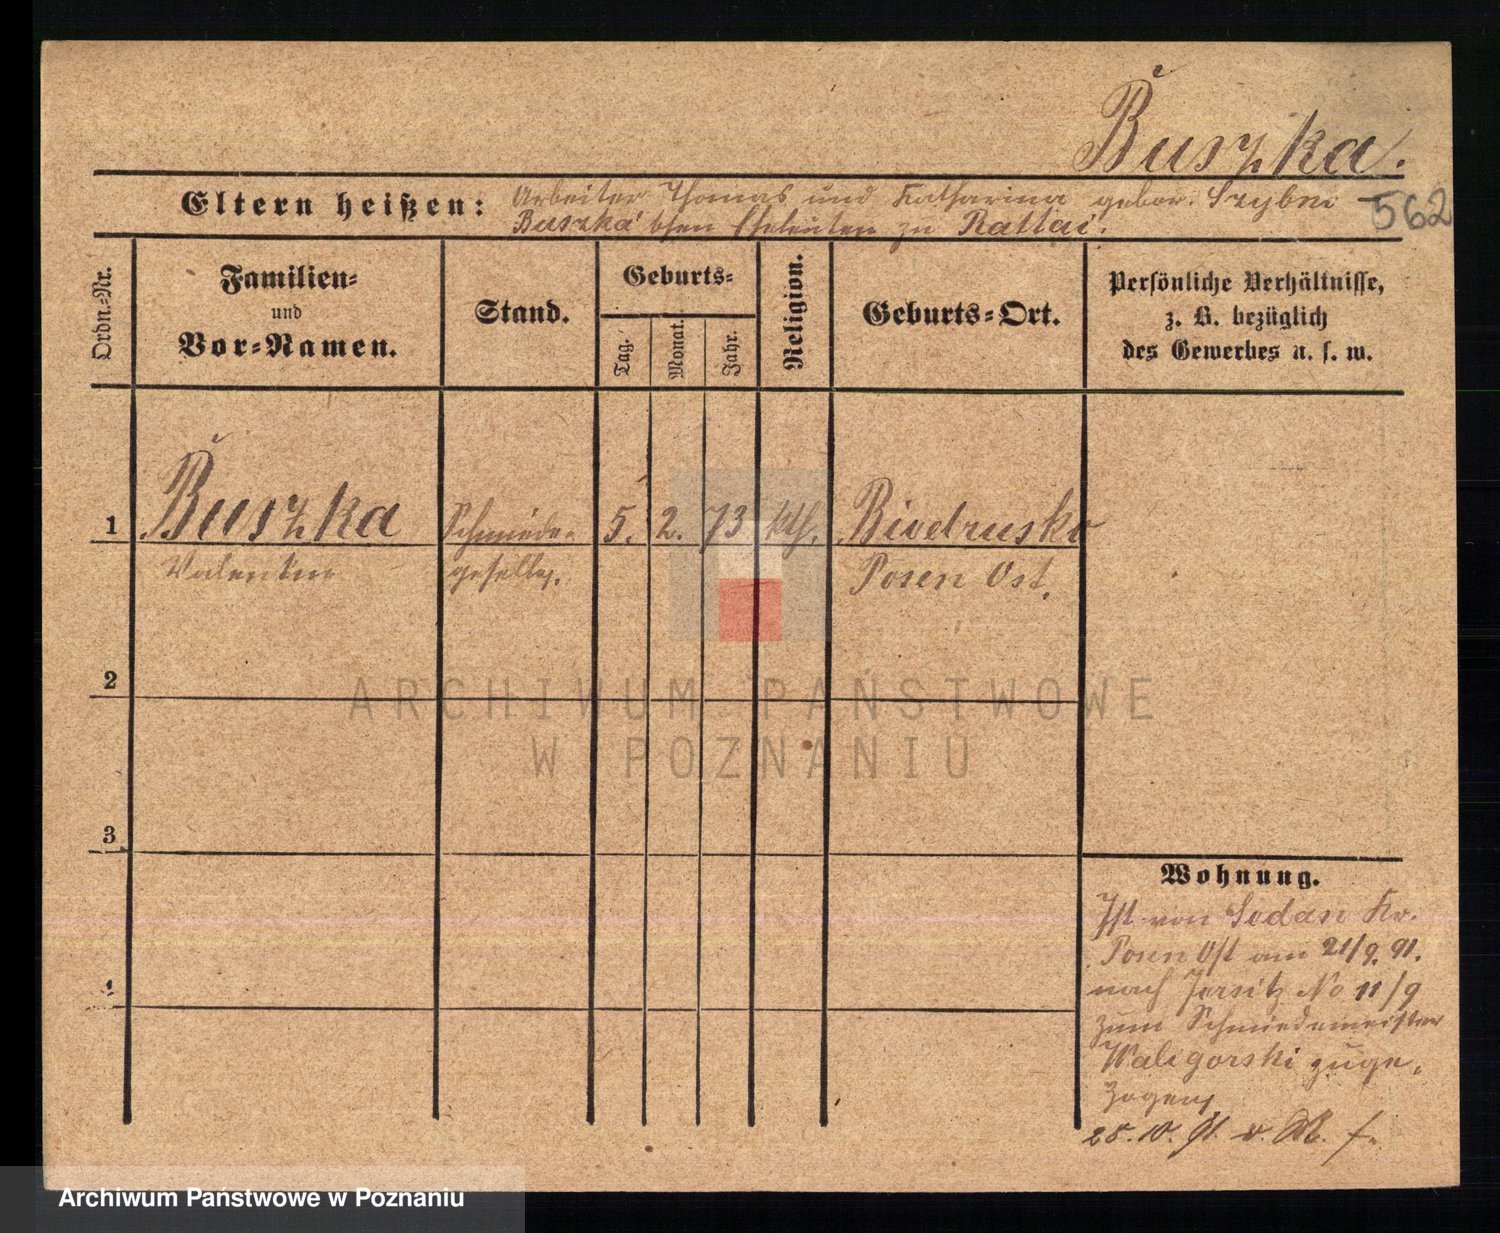 Buszka.
Eltern heißen: Arbeiter Thomas und Katharina gebor. Szybni 562
Buszka'schen Eheleuten zu Rattai.
Ordn.=Nr.
Familien=
und
Vor=Namen.
Stand.
Geburts=
Tag.
Monat.
Jahr.
Religion.
Geburts=Ort.
Persönliche Verhältnisse,
z. B. bezüglich
des Gewerbes u. s. w.
1 Buszka Schmiede- 5. 2. 73 kth. Biedrusko
Valentin geselle. Posen Ost.
2
3
4
Wohnung.
Ist von Sedan Kr.
Posen Ost am 21/9. 91.
nach Jersitz No 11/9
zum Schmiedemeister
Waligorski zuge-
zogen
28. 10. 91. v. M. f.
ARCHIWUM PAŃSTWOWE
W POZNANIU
Archiwum Państwowe w Poznaniu